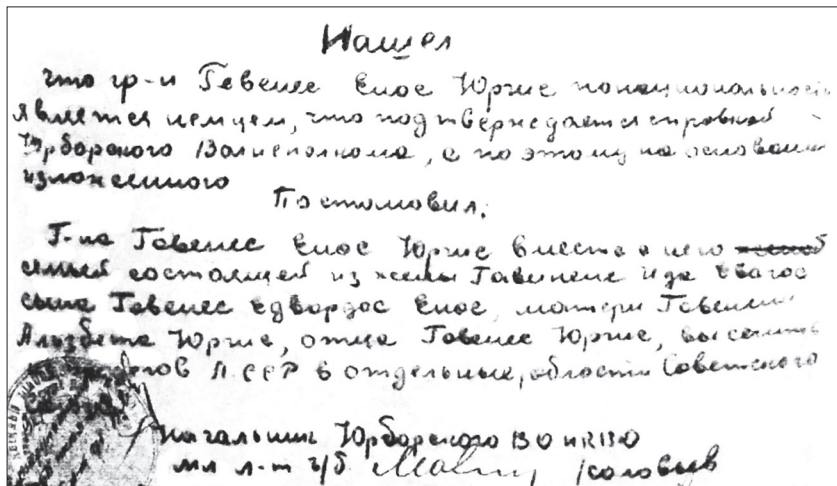 Нашел
что гр-н Гавенес Енос Юргис понациональности
является немцем, что подтверждается справкой
Юрборского Волисполкома, а поэтому на основании
изложенного
Постановил:
Г-на Гавенес Енос Юргис вместе с его
семьей состоящей из жены Гавинене Ида
сына Гавенес Едвардос Енос, матери Гавенене
Альзбета Юргис, отца Гавенес Юргис, выселить
в отдельные, области Советского
Начальник Юрборского ВО НКВД
мл л-т г/б